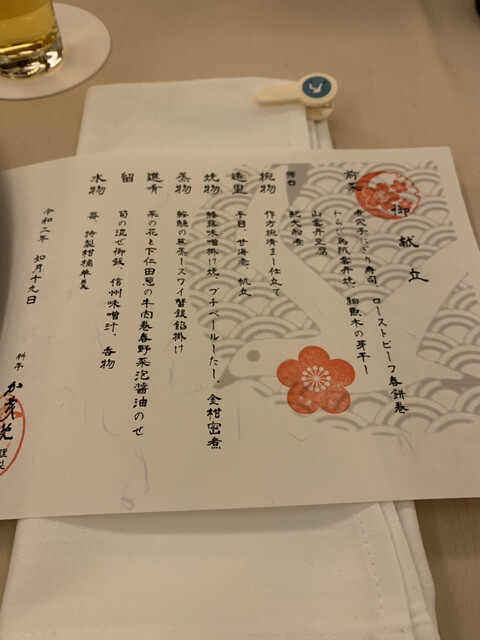 御献立
前菜
煮穴子にぎり寿司、ローストビーフ春餅巻
とらふぐ烏賊雲丹焼、細魚木の芽干し
山雲丹豆腐
猪口
蛇大船煮
椀物
作方椀清まし仕立て
造里
平目、甘海老、帆立
焼物
鰆蕗味噌掛け焼、プチベールーだし、金柑密煮
蒸物
鮟鱇の蕪蒸しズワイ蟹銀餡掛け
進肴
菜の花と下仁田葱の牛肉巻春野菜泡醤油のせ
留
筍の混ぜ御飯、信州味噌汁、香物
水物
苺 特製柑橘羊羹
令和二年 如月十九日
料亭
謹製